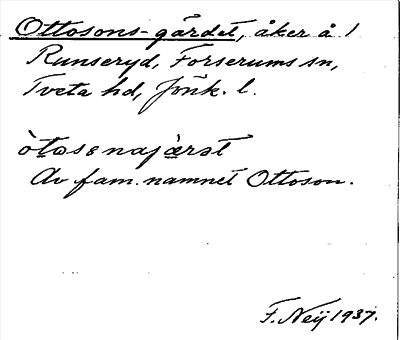 Ottosons-gärdet, åker å 1
Runseryd, Forserums sn,
Tveta hd, Jönk. l.
Av fam. namnet Ottoson.
F. Neij 1937.